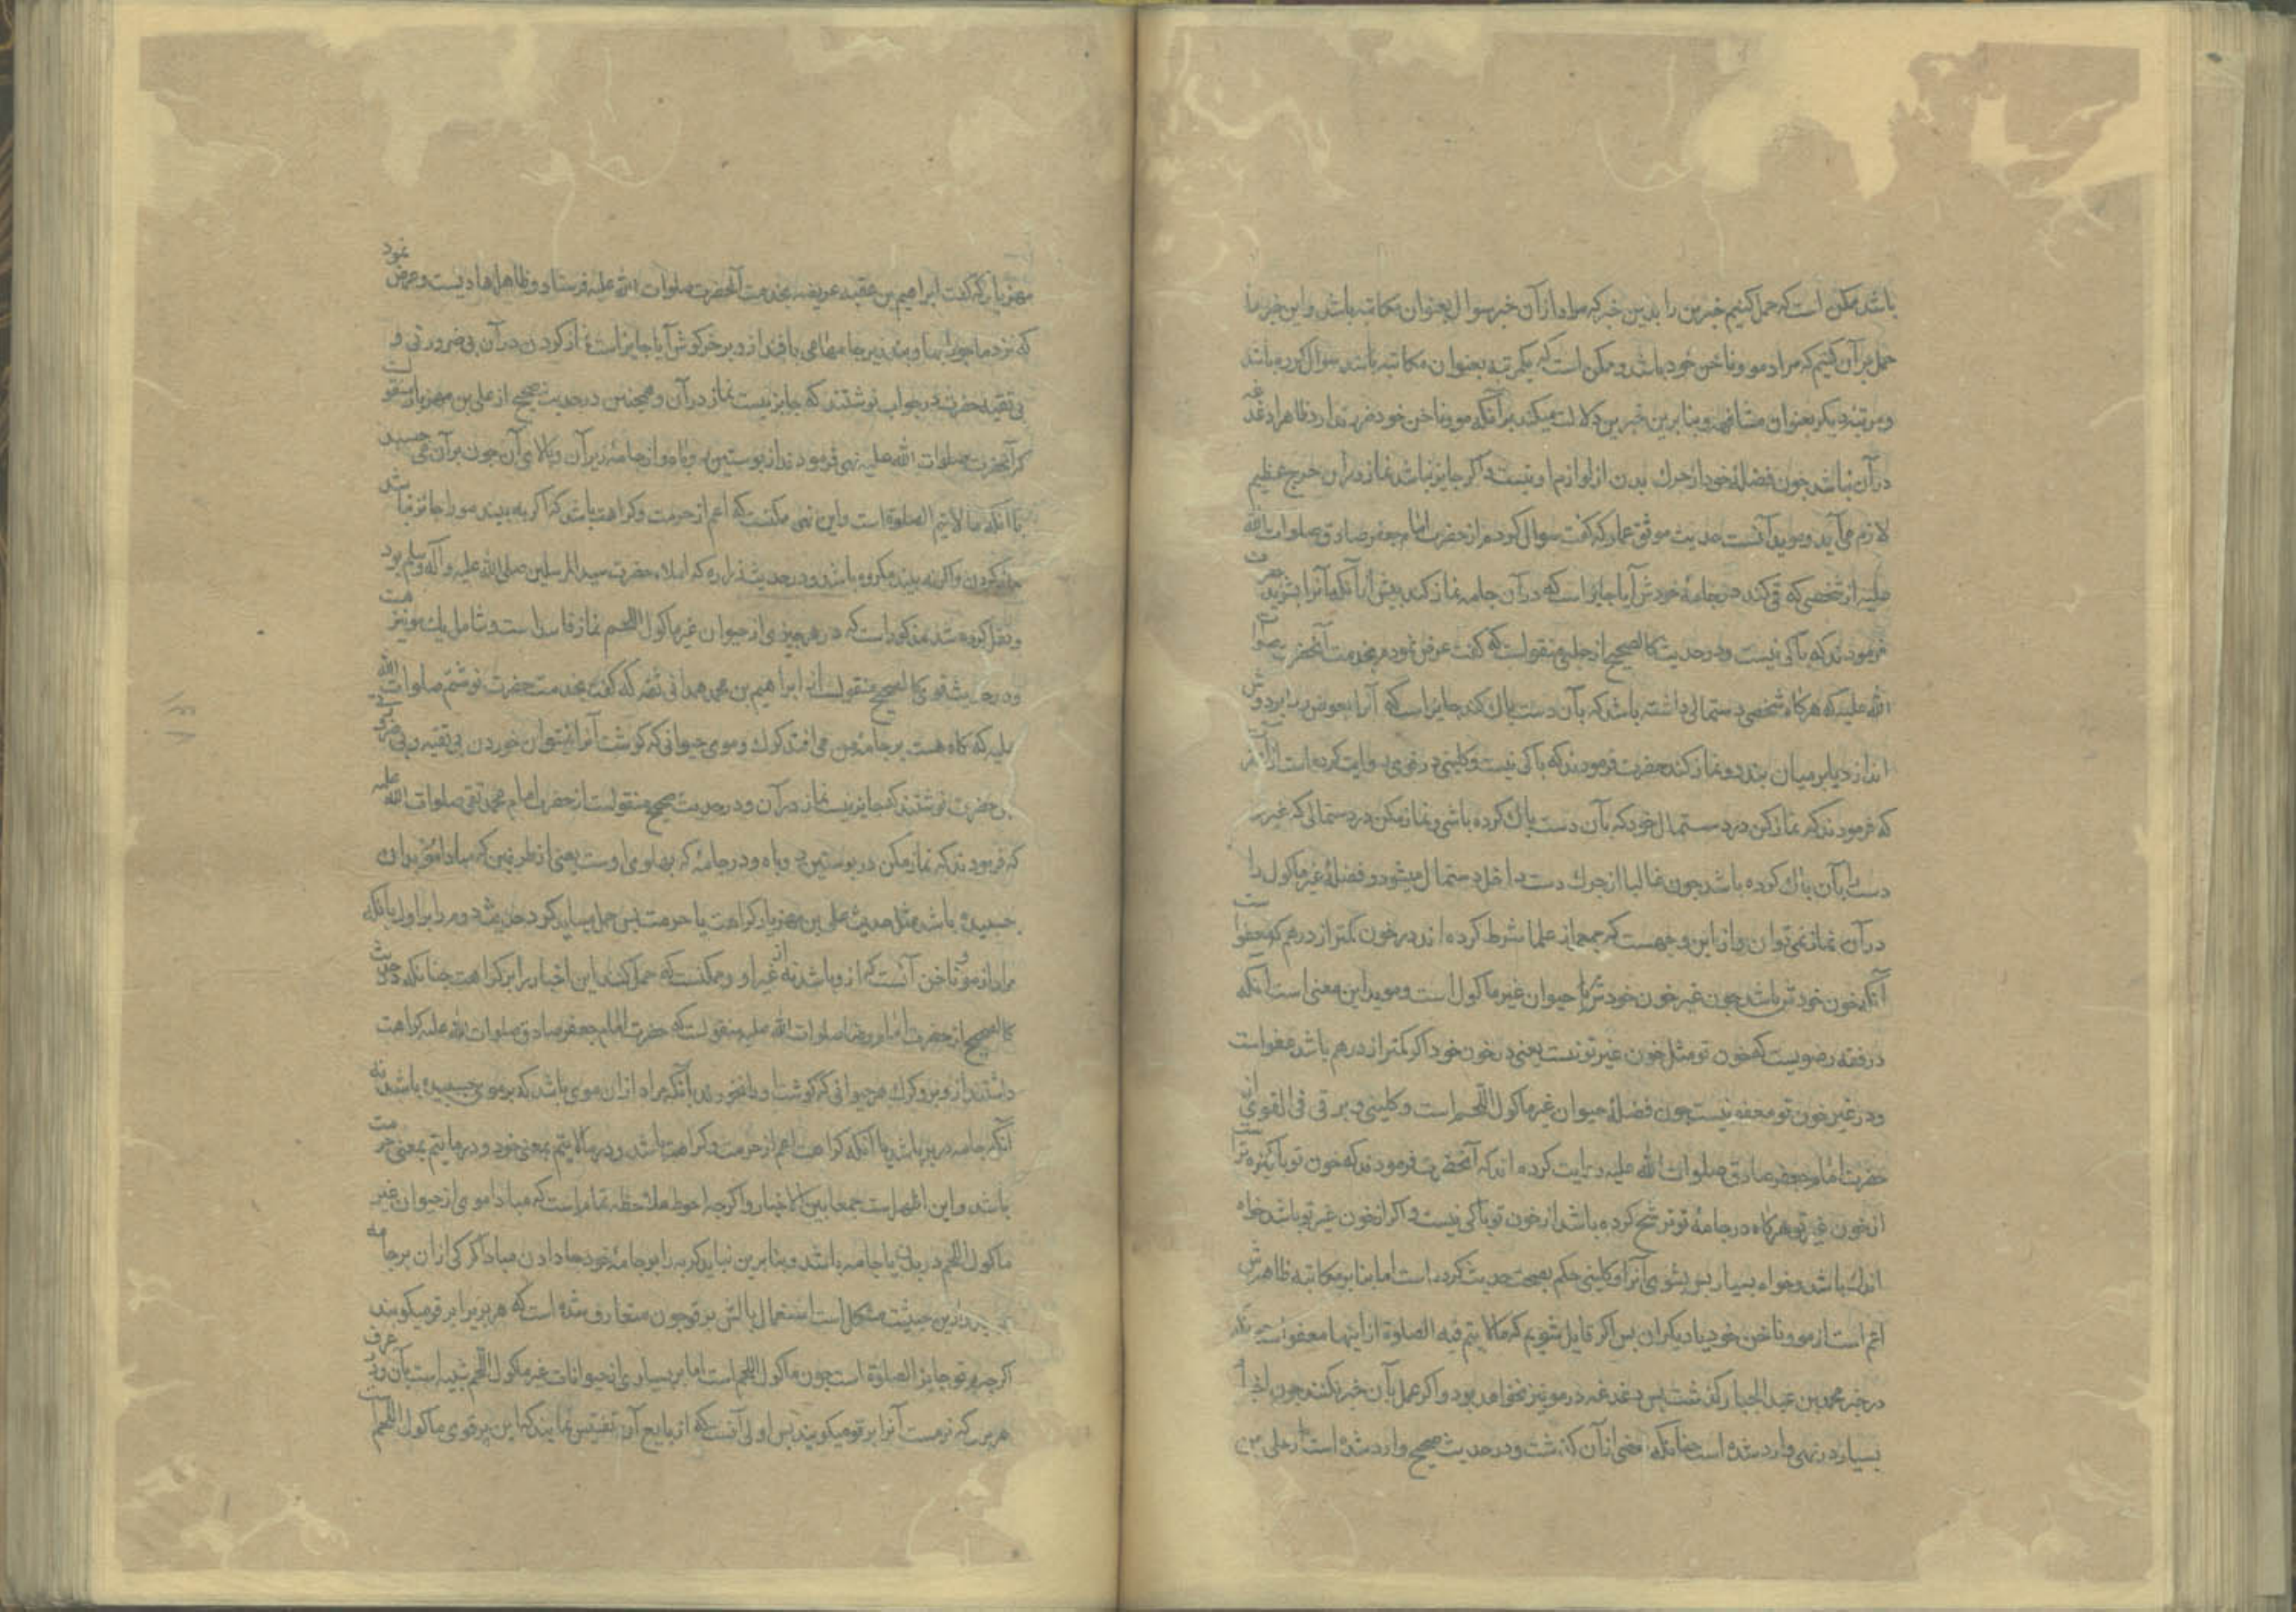 باشد ممکن است که حمل کنیم خبرین را بدین خبر که مراد از آن خبر سوال بعنوان مکاتبه باشد و این خبر را
حمل بر آن کنیم که مراد مو و ناخن خود باشد و ممکن است که یکمرتبه بعنوان مکاتبه باشد سوال کرده باشد
و مرتبه دیگر بعنوان مشافهه و بنا برین خبرین دلالت میکند بر آنکه مو و ناخن خود ضرر ندارد ظاهرا دغدغه
در آن نباشد چون فضلهٔ خود از چرک بدن از لوازم اوست و اگر جایز نباشد نماز در آن حرج عظیم
لازم می آید و موید آنست حدیث موثق عمار که گفت سوال کردم از حضرت امام جعفر صادق صلوات الله
علیه از شخصی که قی کند در جامهٔ خودش آیا جایز است که در آن جامه نماز کند پیش از آنکه آنرا بشوید حضرت
فرمودند که باکی نیست و در حدیث کالصحیح از حلبی منقولست که گفت عرض نمودم بخدمت آنحضرت صلوات
الله علیه که هرگاه شخصی دستمالی داشته باشد که بآن دست پاک کند جایز است که آنرا بعوض ردا بر دوش
اندازد یا بر میان بندد و نماز کند حضرت فرمودند که باکی نیست و کلینی در قوی روایت کرده است از آنحضرت
که فرمودند که نماز کن در دستمال خود که بآن دست پاک کرده باشی و نماز مکن در دستمالی که غیر
دست بآن پاک کرده باشد چون غالبا از چرک دست داخل دستمال میشود و فضلهٔ غیر ماکول را
در آن نماز نمی توان و از این وجهست که جمعی از علما شرط کرده اند در خون کمتر از درهم که معفو است
آنکه خون خودش باشد چون غیر خون خودش یا حیوان غیر ماکول است و موید این معنی است آنکه
در فقه رضویست که خون تو مثل خون غیر تو نیست یعنی در خون خود اگر کمتر از درهم باشد عفو است
و در غیر خون تو معفو نیست چون فضلهٔ حیوان غیر ماکول اللحم است و کلینی و برقی فی القوی از
حضرت امام جعفر صادق صلوات الله علیه روایت کرده اند که آنحضرت فرمودند که خون تو پاکیزه تر است
از خون غیر تو هرگاه در جامهٔ تو ترشح کرده باشد از خون تو باکی نیست و اگر از خون غیر تو باشد خواه
اندک باشد و خواه بسیار پس بشوی آنرا و کلینی حکم بصحت حدیث کرده است اما بنا بر مکاتبه ظاهرش
اعم است از مو و ناخن خود یا دیگران پس اگر قایل شویم که مالا یتم فیه الصلوة از اینها معفو است چنانکه
در خبر محمد بن عبد الجبار گذشت پس دغدغه در مو نیز نخواهد بود و اگر عمل بآن خبر نکنند چون اخبار
بسیار در نهی وارد شده است چنانکه بعضی از آن گذشت و در حدیث صحیح وارد شده است از علی بن
مهزیار که گفت ابراهیم بن عقبه عریضه بخدمت آنحضرت صلوات الله علیه فرستاد و ظاهرا هادیست و عرض نمود
که نزد ما جوراب و بند زیر جامها می بافند از وبر خرگوش آیا جایز است نماز کردن در آن بی ضرورتی و
بی تقیه حضرت در جواب نوشتند که جایز نیست نماز در آن و همچنین در حدیث صحیح از علی بن مهزیار منقولست
که آنحضرت صلوات الله علیه نهی فرمودند از پوستین روباه و از جامهٔ زیر آن و بالای آن چون بر آن می چسبد
با آنکه مالا یتم الصلوة است و این نهی ممکنست که اعم از حرمت و کراهت باشد که اگر به بیند مو را جائز نباشد
نماز کردن و اگر نه بیند مکروه باشد و در حدیث زراره که املاء حضرت سید المرسلین صلی الله علیه و آله و سلم بود
و نقل کرده شد مذکور است که در هر چیزی از حیوان غیر ماکول اللحم نماز فاسد است و شامل یک مو نیز هست
و در حدیث قوی کالصحیح منقولست از ابراهیم بن محمد همدانی ثقه که گفت بخدمت حضرت نوشتم صلوات الله
علیه که گاه هست بر جامهٔ من می افتد کرک و موی حیوانی که گوشت آنرا نمیتوان خوردن بی تقیه و بی ضرورتی
پس حضرت نوشتند که جایز نیست نماز در آن و در حدیث صحیح منقولست از حضرت امام محمد تقی صلوات الله علیه
که فرمودند که نماز مکن در پوستین روباه و در جامهٔ که پهلوی اوست یعنی از طرفین که مبادا مو بر آن
چسبیده باشد مثل حدیث علی بن مهزیار کراهت یا حرمت پس حمل میباید کرد حدیث دوم را بر اول یا آنکه
مراد از مو و ناخن آنست که از او باشد نه از غیر او و ممکنست که حمل کنند این اخبار را بر کراهت چنانکه در حدیث
کالصحیح از حضرت امام رضا صلوات الله علیه منقولست که حضرت امام جعفر صادق صلوات الله علیه کراهت
داشتند از وبر و کرک هر حیوانی که گوشت او را نخورند با آنکه مراد از آن موی باشد که بر موی چسبیده باشد نه
آنکه جامه در بر باشد یا آنکه کراهت اعم از حرمت و کراهت باشد و در مالا یتم بمعنی خود و در ما یتم بمعنی حرمت
باشد و این اظهر است جمعا بین الاخبار و اگرچه احوط ملاحظه تمام است که مبادا موی از حیوان غیر
ماکول اللحم در بدن یا جامه باشد و بنا برین نباید گربه را بر جامهٔ خود جا دادن مبادا کرکی از آن بر جامه
چسبد و ازین حیثیت مشکل است استعمال بالش پر قو چون متعارف شده است که هر پر را پر قو میگویند
اگرچه پر قو جایز الصلوة است چون ماکول اللحم است اما پر بسیاری از حیوانات غیر ماکول اللحم شبیه است بآن و در عرف
هر پر که نرمست آنرا پر قو میگویند پس اولی آنست که از بایع آن تفتیش نمایند که این پر قوی ماکول اللحم است